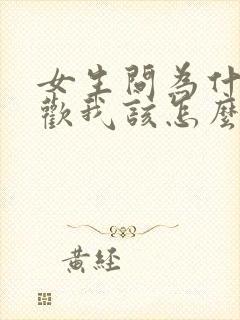 女生問為什
歡我該怎麼
黃經